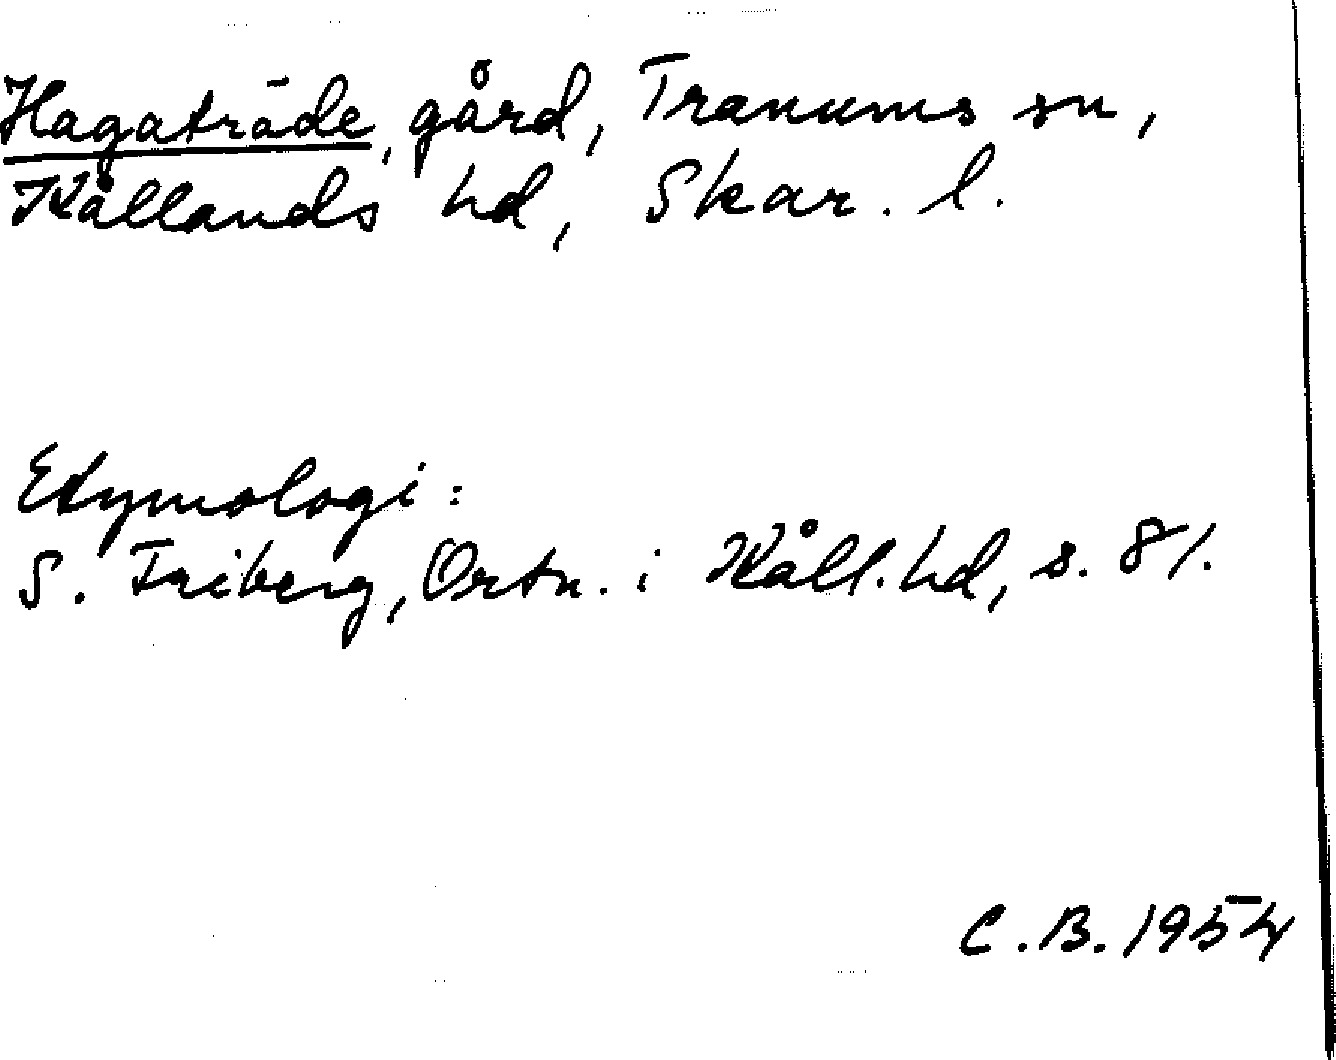 Hagaträde, gård, Tranums sn,
Kållands hd, Skar. l.
Etymologi:
S. Friberg, Ortn. i Kåll. hd, s. 81.
C.B. 1954